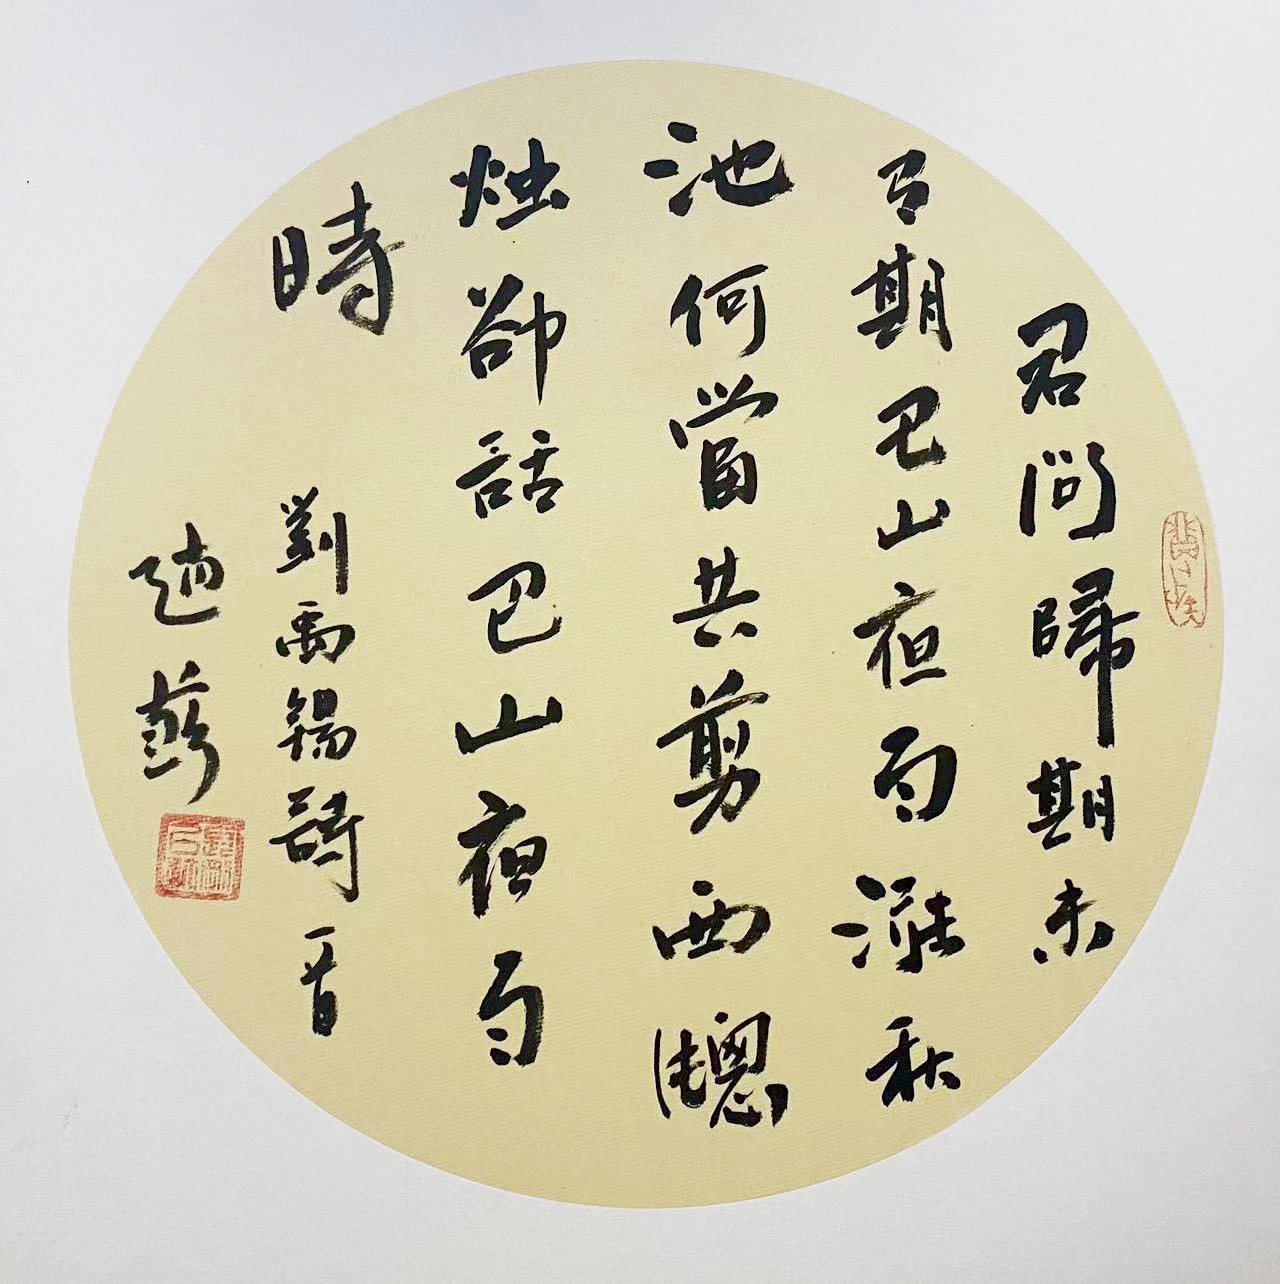 君問歸期未
有期巴山夜雨漲秋
池何當共剪西牕
烛卻話巴山夜雨
時
劉禹錫詩 晉
趙